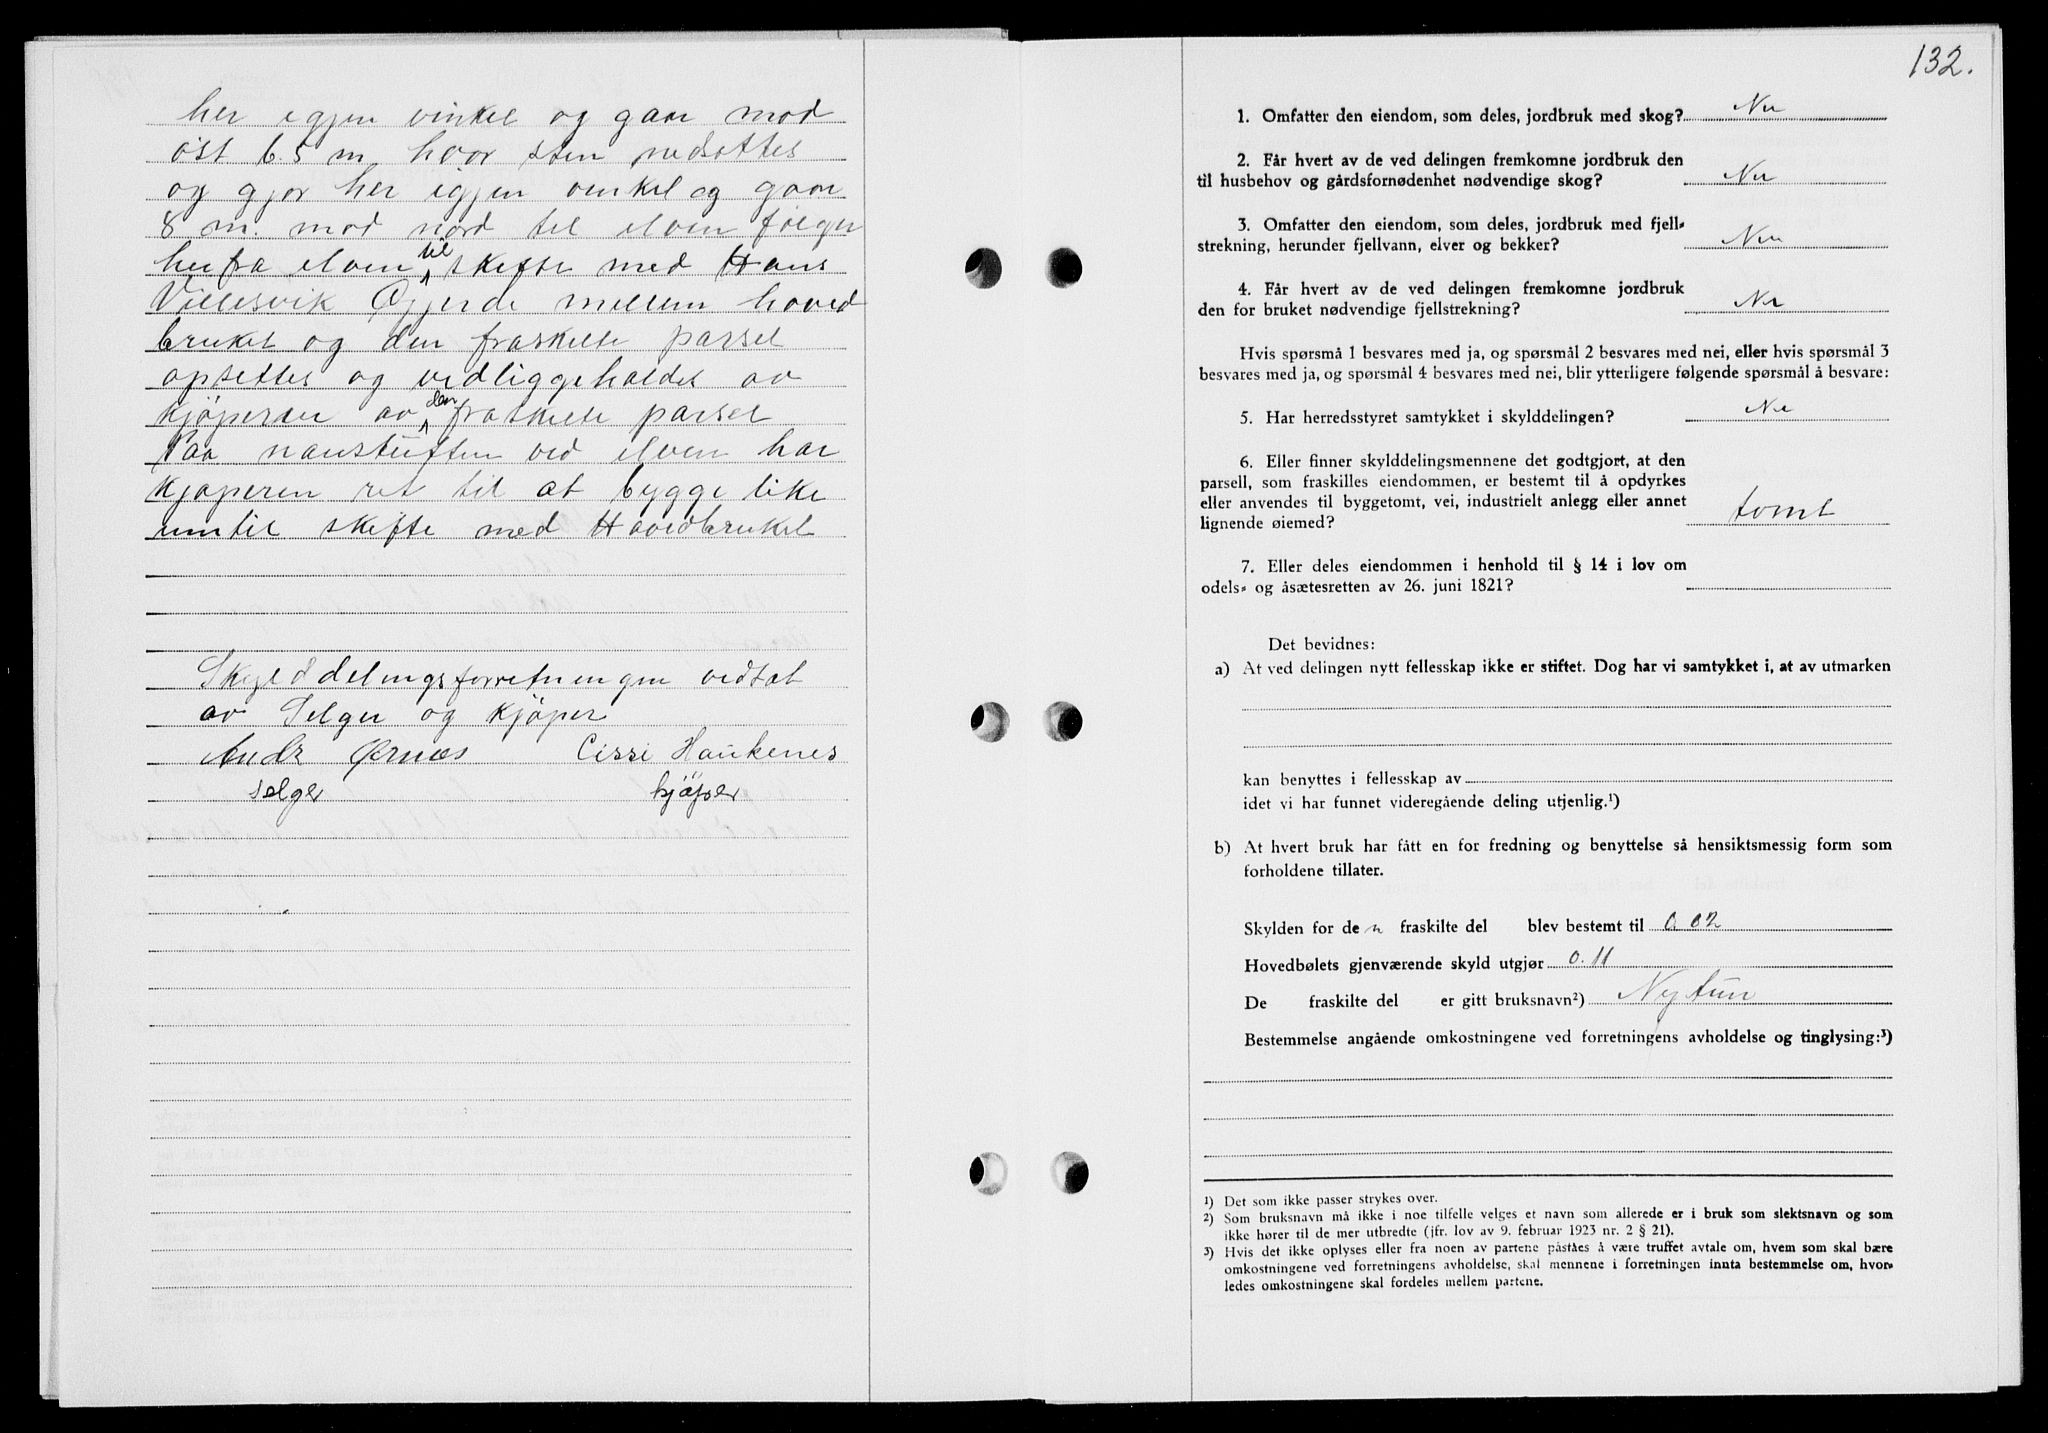 her igjen vinkel og gaar mod
øst 6.5 m. hvor sten nedsættes
og gjør her igjen vinkel og gaar
8 m. mod nord til elven følger
herfra elven til skifte med Hans
Villesvik Gjerde mellem hoved
bruket og den fraskilte parsel
opsettes og vedliggeholdes av
kjøperen av den fraskilte parsel
Paa nausttuften ved elven har
kjøperen ret til at bygge like
inntil skifte med Hovedbruket
Skylddelingsforretningen vedtat
av Selger og kjøper
Andr Ørnes Cissi Haukenes
selger kjøper
132.
1. Omfatter den eiendom, som deles, jordbruk med skog? Nei
2. Får hvert av de ved delingen fremkomne jordbruk den
til husbehov og gårdsfornødenhet nødvendige skog? Nei
3. Omfatter den eiendom, som deles, jordbruk med fjell-
strekning, herunder fjellvann, elver og bekker? Nei
4. Får hvert av de ved delingen fremkomne jordbruk
den for bruket nødvendige fjellstrekning? Nei
Hvis spørsmå 1 besvares med ja, og spørsmål 2 besvares med nei, eller hvis spørsmål 3
besvares med ja, og spørsmål 4 besvares med nei, blir ytterligere følgende spørsmål å besvare:
5. Har herredsstyret samtykket i skylddelingen? Nei
6. Eller finner skylddelingsmennene det godtgjort, at den
parsell, som fraskilles eiendommen, er bestemt til å opdyrkes
eller anvendes til byggetomt, vei, industrielt anlegg eller annet
lignende øiemed? tomt
7. Eller deles eiendommen i henhold til § 14 i lov om
odels- og åsætesretten av 26. juni 1821?
Det bevidnes:
a) At ved delingen nytt fellesskap ikke er stiftet. Dog har vi samtykket i, at av utmarken
kan benyttes i fellesskap av
idet vi har funnet videregående deling utjenlig.¹)
b) At hvert bruk har fått en for fredning og benyttelse så hensiktsmessig form som
forholdene tillater.
Skylden for de n fraskilte del blev bestemt til 0.02
Hovedbølets gjenværende skyld utgjør 0.11
De fraskilte del er gitt bruksnavn²) Nytun
Bestemmelse angående omkostningene ved forretningens avholdelse og tinglysing:³)
¹) Det som ikke passer strykes over.
²) Som bruksnavn må ikke i noe tilfelle velges et navn som allerede er i bruk som slektsnavn og som
ikke hører til de mer utbredte (jfr. lov av 9. februar 1923 nr. 2 § 21).
³) Hvis det ikke oplyses eller fra noen av partene påståes å være truffet avtale om, hvem som skal bære
omkostningene ved forretningens avholdelse, skal mennene i forretningen innta bestemmelse om, hvor-
ledes omkostningene skal fordeles mellem partene.